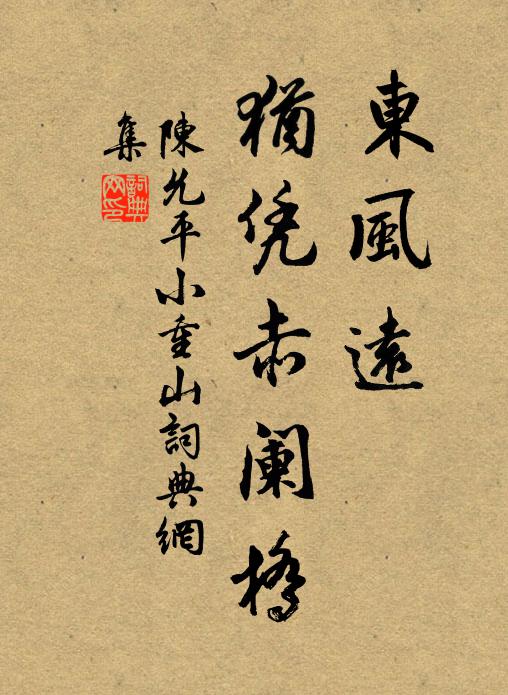 東風遠
猶凭赤阑橋
陳允平小重山詞典網
集
詞典
网印